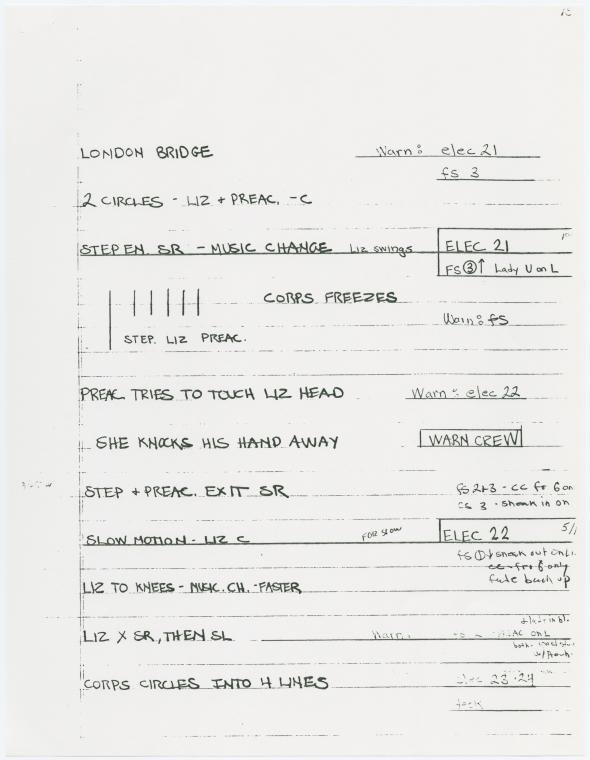 LONDON BRIDGE Warn: elec 21
fs 3
2 CIRCLES - LIZ + PREAC. - C
STEP EN. SR - MUSIC CHANGE Liz swings ELEC 21
FS ③↑ Lady U on L
CORPS FREEZES
Warn: fs
STEP. LIZ PREAC.
PREAC TRIES TO TOUCH LIZ HEAD Warn: elec 22
SHE KNOCKS HIS HAND AWAY WARN CREW
STEP + PREAC. EXIT SR fs 2+3 - cc fr 6 on
cs 3 - sneak in on
SLOW MOTION - LIZ C FOR SLOW ELEC 22 5/1
fs ①↓ sneak out on Li.
cc fr 6 only
fade back up
LIZ TO KNEES - MUSIC. CH. - FASTER
LIZ X SR, THEN SL Warn: on L
both
CORPS CIRCLES INTO 4 LINES elec 23-24